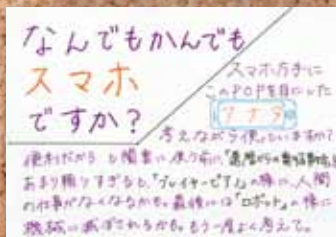 なんでもかんでも
スマホ
ですか?
スマホ片手に
このPOPを目にした
アナタ
考えながら使っていますか?
便利だから と 簡単に 使う前に
あまり頼りすぎると、「プレイヤーピアノ」の様に、人間
の仕事がなくなるかも。最後には「ロボット」の様に
機械に滅ぼされるかも。もう一度よく考えて。